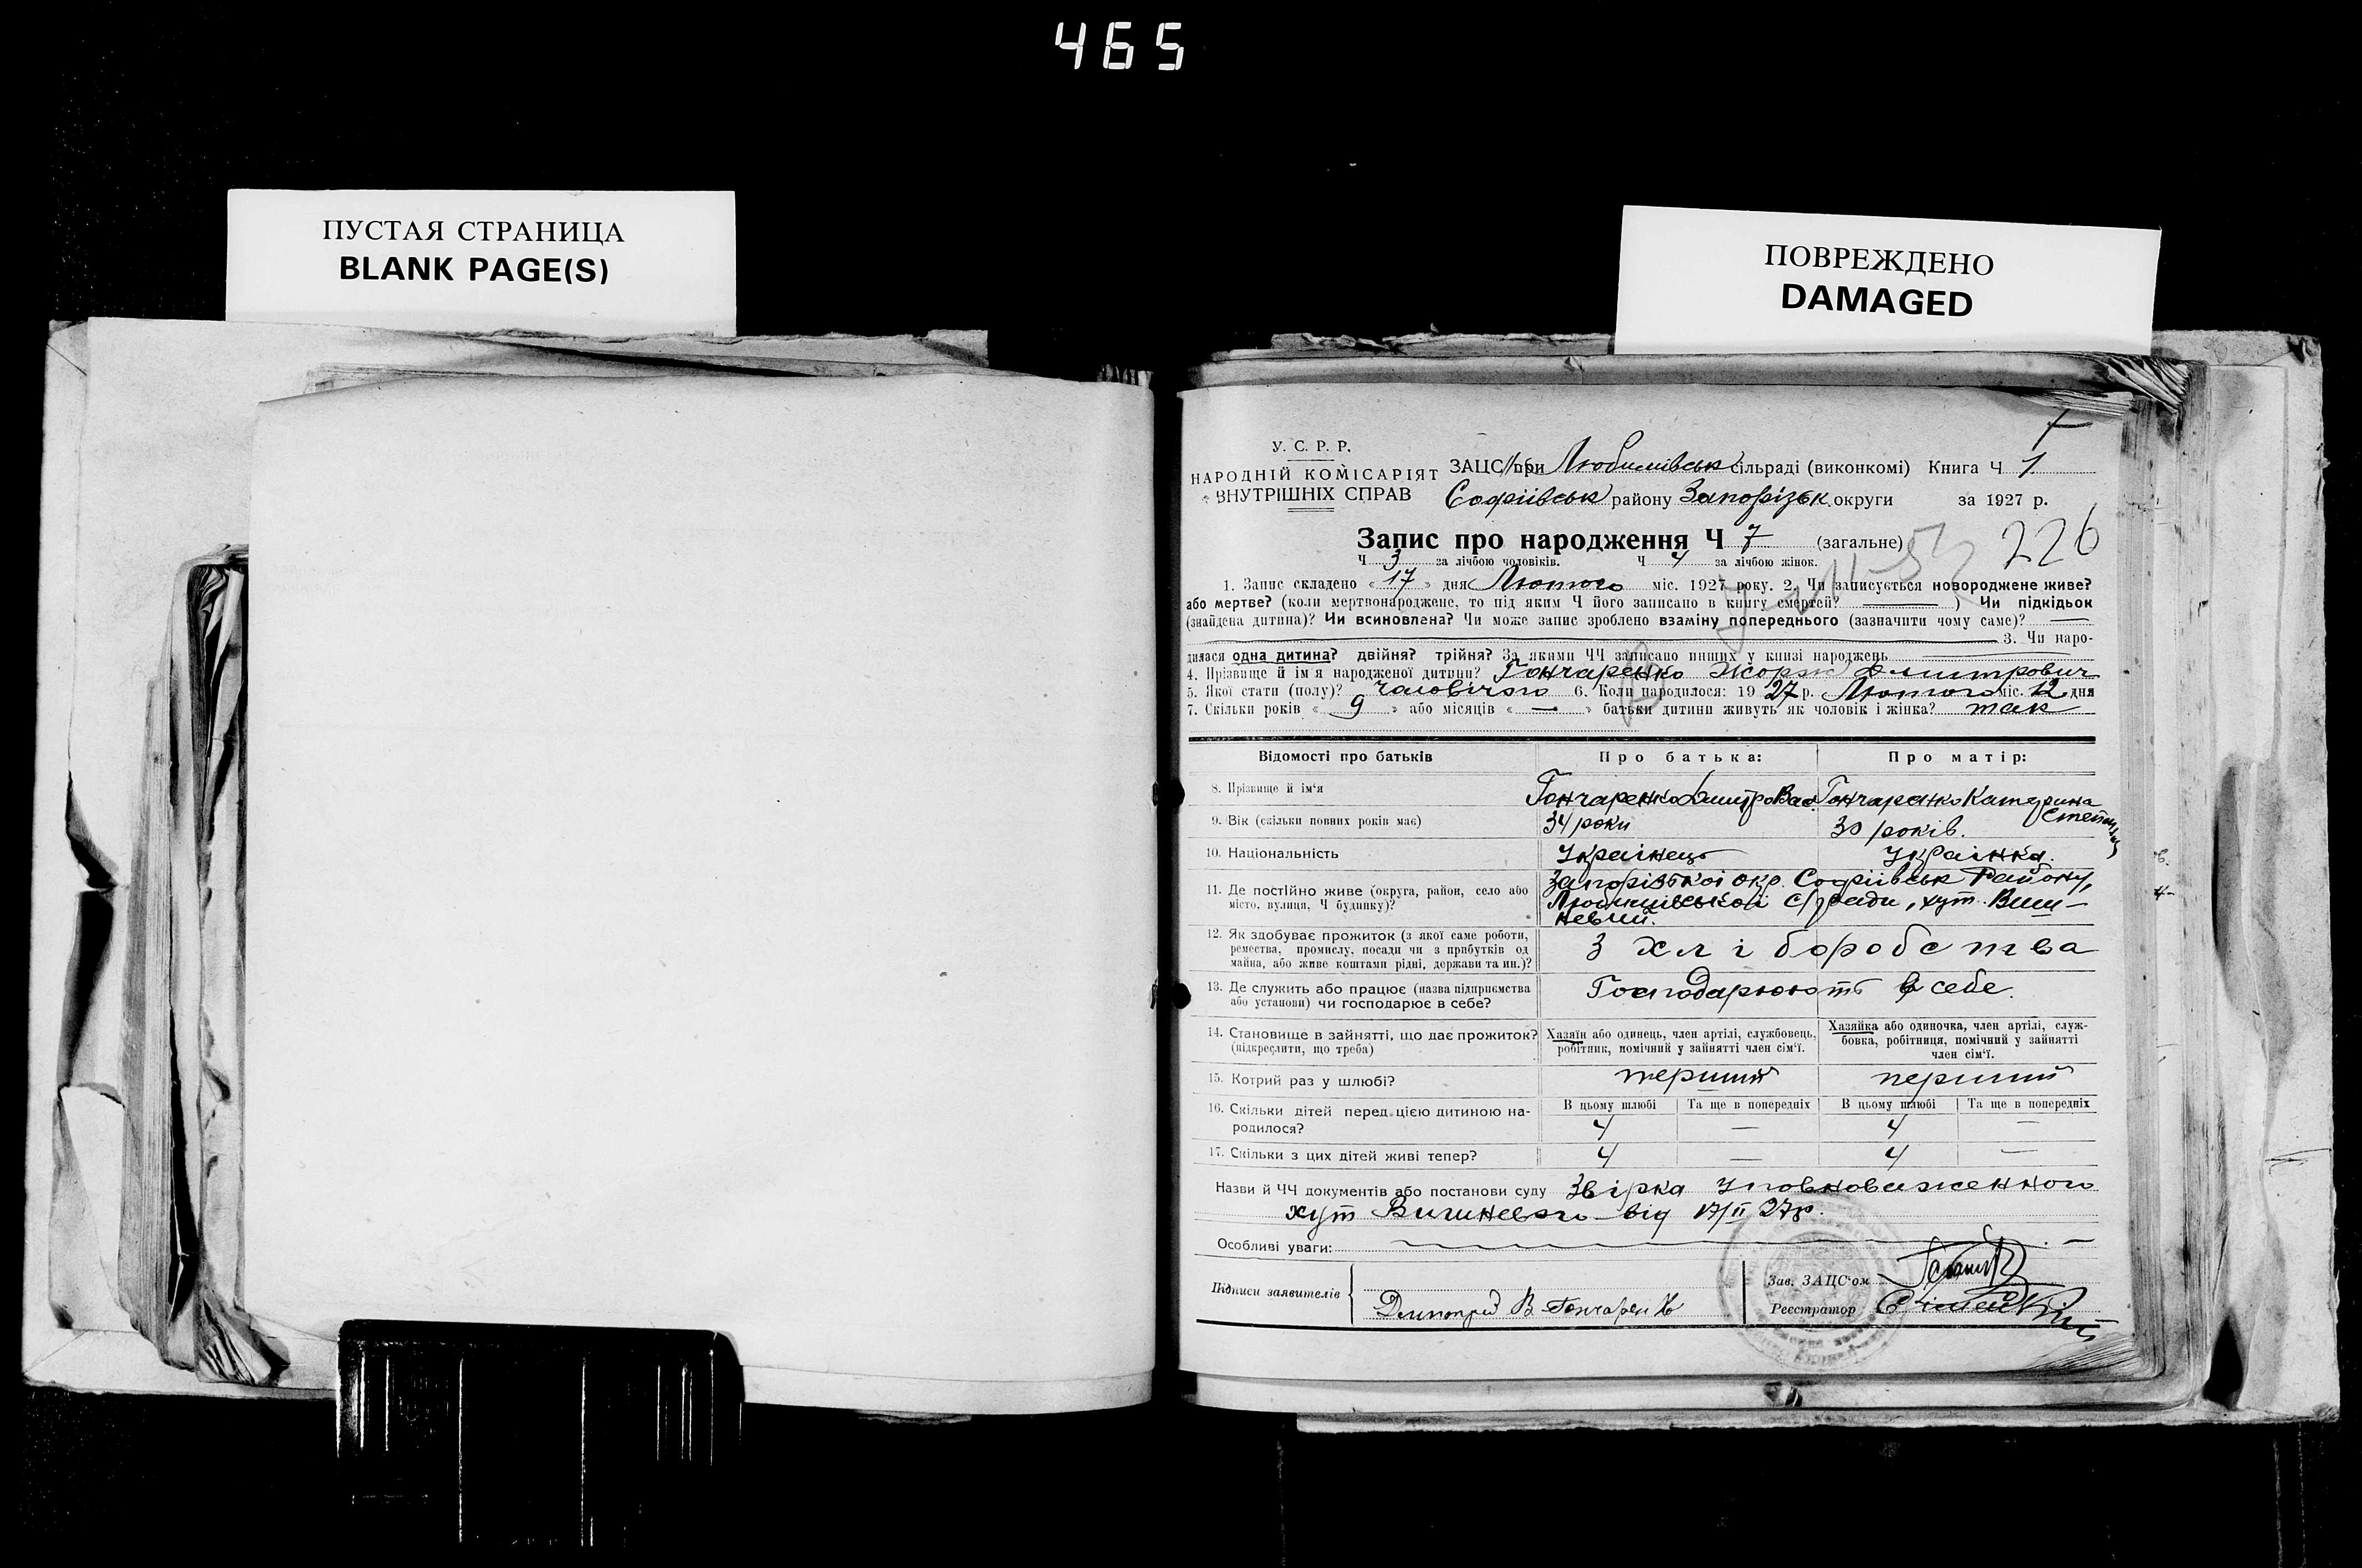 465
ПУСТАЯ СТРАНИЦА
BLANK PAGE(S)
ПОВРЕЖДЕНО
DAMAGED
У. С. Р. Р.
НАРОДНІЙ КОМІСАРІЯТ
ВНУТРІШНІХ СПРАВ
ЗАЦС при Любимівськ сільраді (виконкомі) Книга Ч 1
Софіївськ району Запорізьк. округи за 1927 р.
Запис про народження Ч 7 (загальне) 226
Ч 3 за лічбою чоловіків. Ч 4 за лічбою жінок.
1. Запис складено « 17 » дня Лютого міс. 1927 року. 2. Чи записується новороджене живе?
або мертве? (коли мертвонароджене, то під яким Ч його записано в книгу смертей? —) Чи підкідьок
(знайдена дитина)? Чи всиновлена? Чи може запис зроблено взаміну попереднього (зазначити чому саме)? —
— 3. Чи наро-
дилася одна дитина? двійня? трійня? За якими ЧЧ записано инших у книзі народжень —
4. Прізвище й ім'я народженої дитини? Гончаренко Жорж Дмитрович
5. Якої стати (полу)? чоловічого 6. Коли народилося: 1927 р. Лютого міс. 12 дня
7. Скільки років « 9 » або місяців « — » батьки дитини живуть як чоловік і жінка? так
Відомості про батьків Про батька: Про матір:
8. Прізвище й ім'я Гончаренко Дмитро Вас. Гончаренко Катерина
9. Вік (скільки повних років має) 34 роки 30 років.
10. Національність Українець Українка.
11. Де постійно живе (округа, район, село або
місто, вулиця, Ч будинку)?
Запорізької окр. Софіївськ Району,
Любимівської с/ради, хут. Виш-
невий.
12. Як здобуває прожиток (з якої саме роботи,
ремества, промислу, посади чи з прибутків од
майна, або живе коштами рідні, держави та ин.)?
З хліборобства
13. Де служить або працює (назва підприємства
або установи) чи господарює в себе?
Господарюють в себе.
14. Становище в зайнятті, що дає прожиток?
(підкреслити, що треба)
Хазяїн або одинець, член артілі, службовець,
робітник, помічний у зайнятті член сім'ї.
Хазяйка або одиночка, член артілі, служ-
бовка, робітниця, помічний у зайнятті
член сім'ї.
15. Котрий раз у шлюбі? перший перший
16. Скільки дітей перед цією дитиною на-
родилося?
В цьому шлюбі Та ще в попередніх В цьому шлюбі Та ще в попередніх
4 — 4 —
17. Скільки з цих дітей живі тепер? 4 — 4 —
Назви й ЧЧ документів або постанови суду Звірка уповноваженного
хут Вишневого від 17/II 27р.
Особливі уваги:
Підписи заявителів
Дмитрий В Гончаренко
Зав. ЗАЦС'ом
Реєстратор